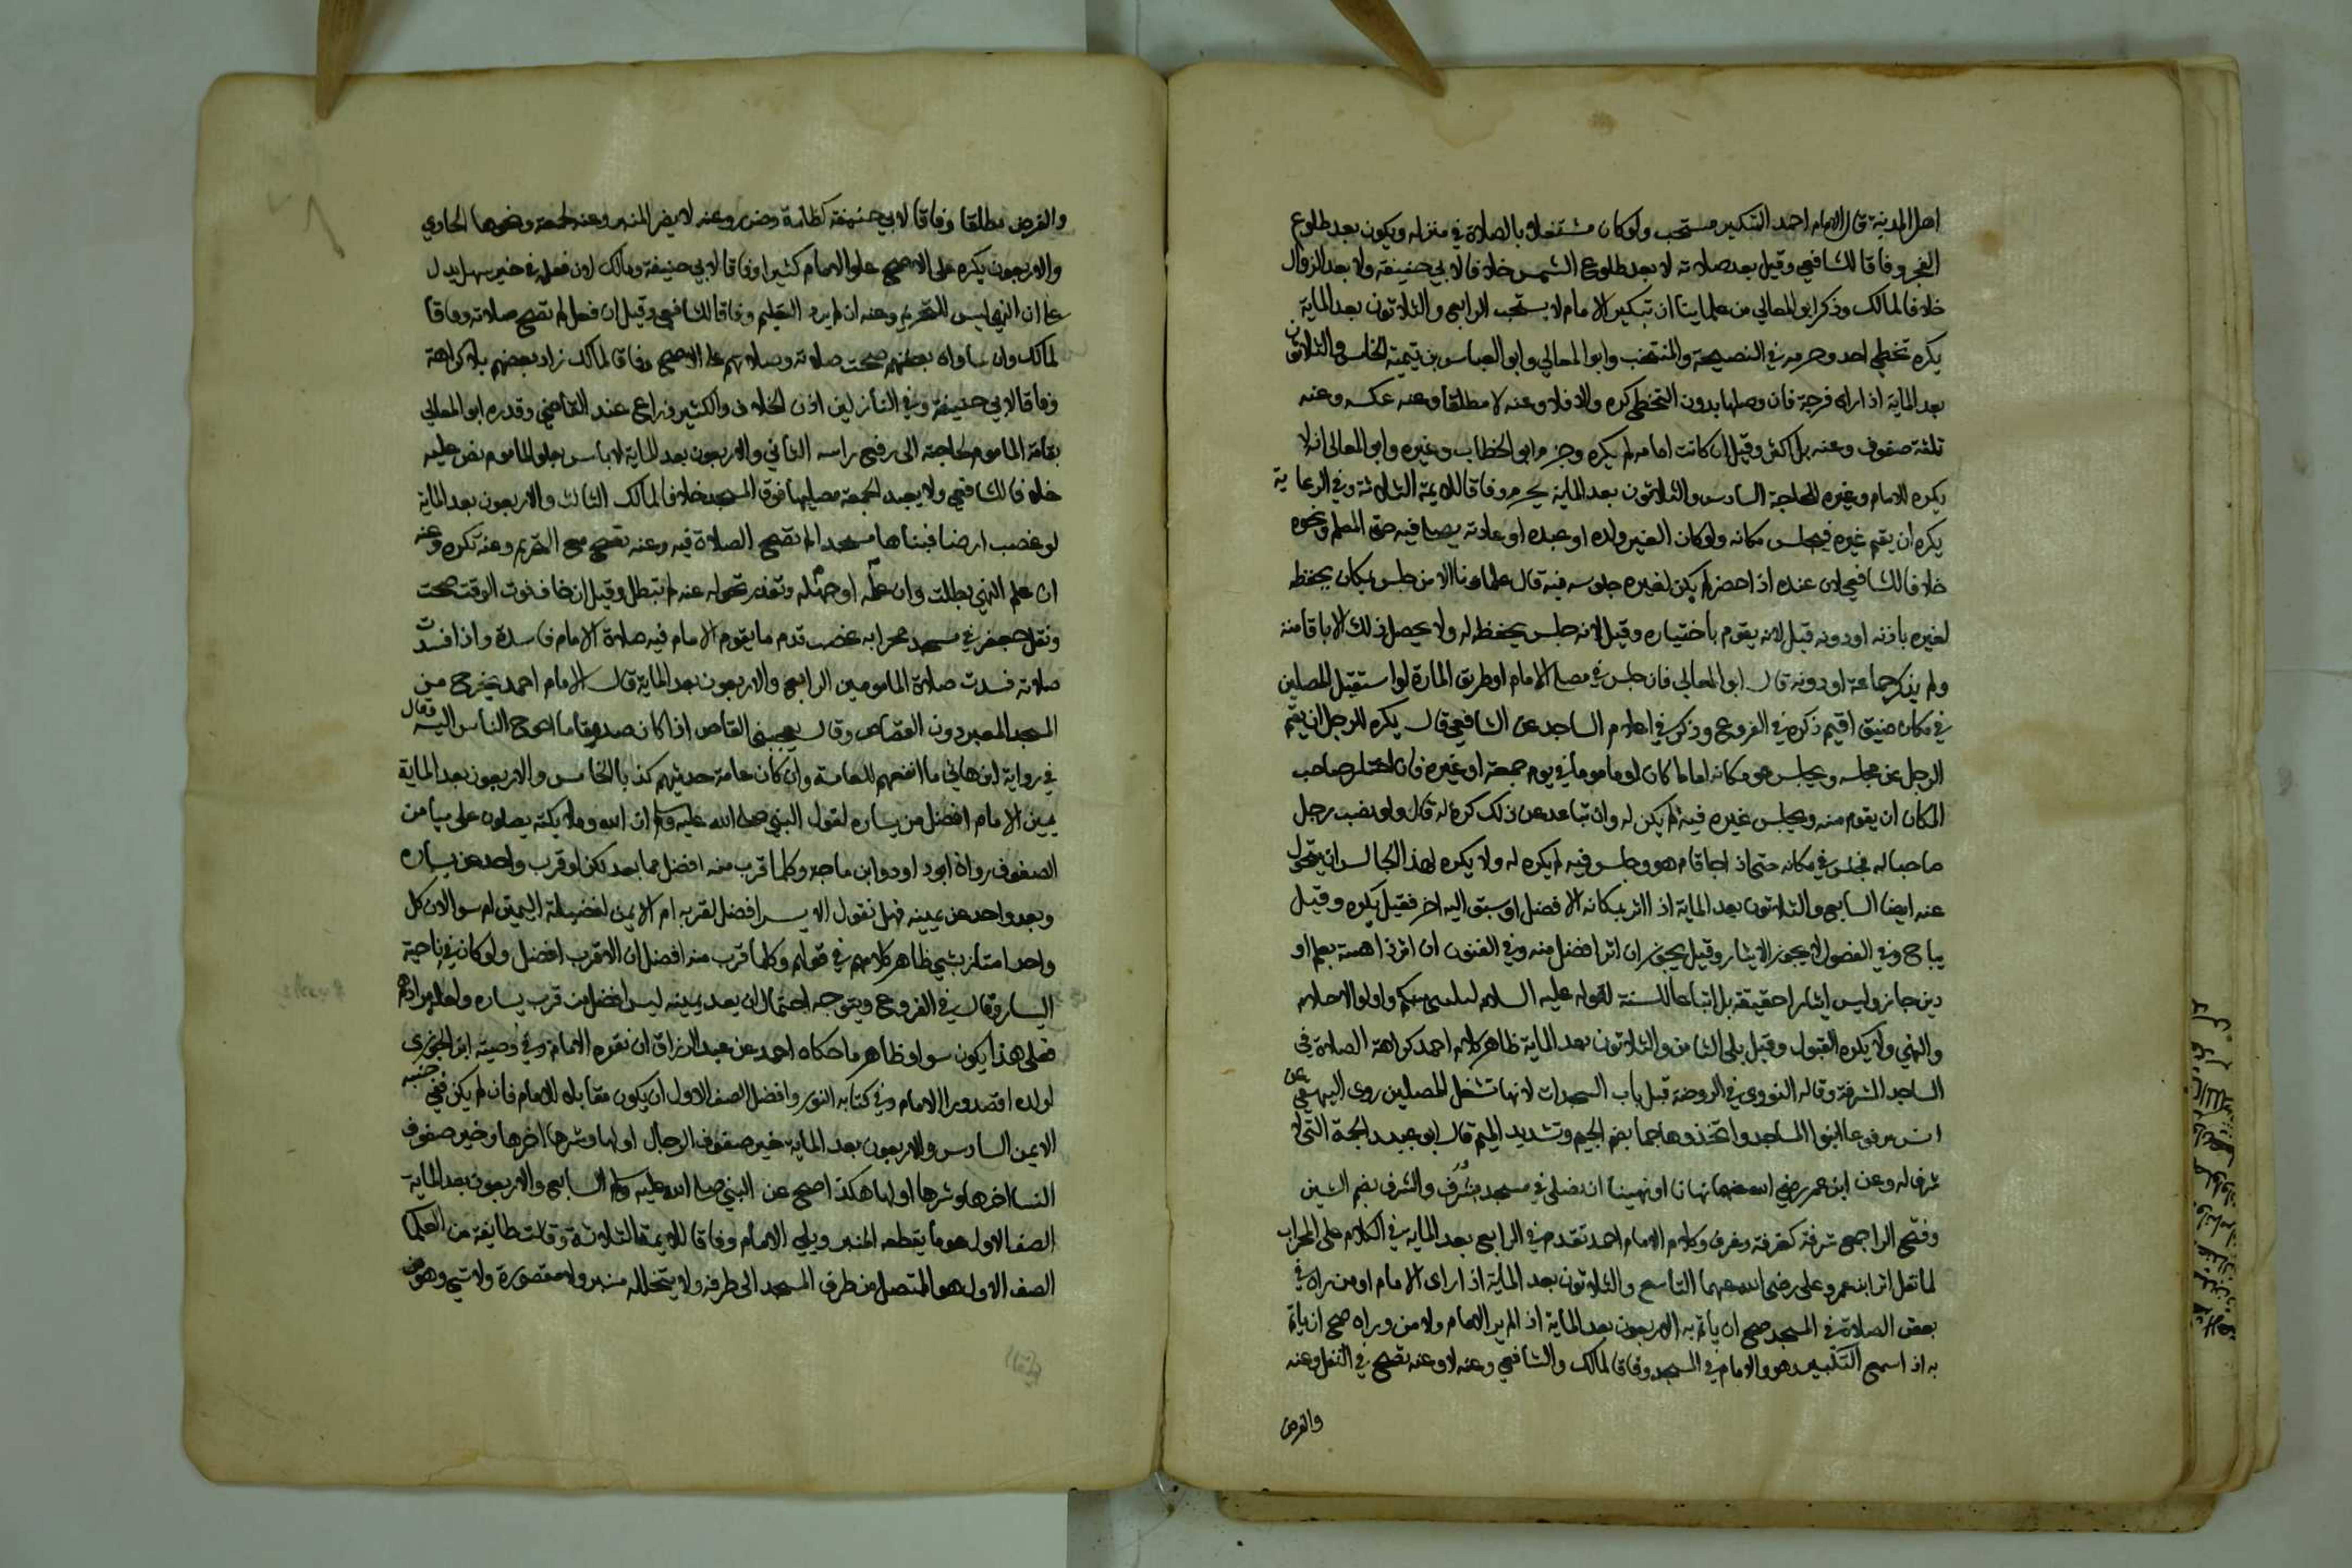 اهل المدينة قال الامام احمد التبكير مستحب ولو كان مشتغلا بالصلاة في منزله ويكون بعد طلوع
الفجر وفاقا للشافعي وقيل بعد صلاته لا بعد طلوع الشمس خلافا لابي حنيفة ولا بعد الزوال
خلافا لمالك وذكر ابو المعالي من علماينا ان تبكير الامام لا يستحب الرابع والثلاثون بعد الماية
يكره تخطي احد وحرمه في النصيحة والمنتخب وابو المعالي وابو العباس بن تيمية الخامس والثلاثون
بعد الماية اذا راى فرجة فان وصلها بدون التخطي كره والا فلا وعنه لا مطلقا وعنه عكسه وعنه
ثلثة صفوف وعنه بل اكثر وقيل ان كانت امامه لم يكره وجزم ابو الخطاب وغيره وابو المعالي انه لا
يكره للامام وغيره للحاجة السادس والثلاثون بعد الماية يحرم وفاقا للايمة الثلاثة وفي الرعاية
يكره ان يقيم غيره فيجلس مكانه ولو كان الغير ولده او عبده او عادته يصلي فيه حتى المعلم ونحوه
خلافا للشافعي لان عنده اذا حضر لم يكن لغيره جلوسه فيه قال علماونا الا من جلس بمكان يحفظه
لغيره باذنه او دونه قيل لانه يقوم باختياره وقيل لانه جلس يحفظه له ولا يحصل ذلك الا باقامته
ولم يذكر جماعة او دونه قال ابو المعالي فان جلس في مصلى الامام او طريق المارة او استقبل المصلين
في مكان ضيق اقيم ذكره في الفروع وذكر في اعلام الساجد عن الشافعي قال يكره للرجل ان يقيم
الرجل عن مجلسه ويجلس هو مكانه اماما كان او ماموما في يوم جمعة او غيره فان اختار صاحب
المكان ان يقوم منه ويجلس غيره فيه لم يكن له وان تباعد عن ذلك كره له قال ولو نصب رجل
صاحبا له فجلس في مكانه حتى اذا جا قام هو وجلس فيه لم يكره له ولا يكره لهذا الجالس ان يتحول
عنه ايضا السابع والثلاثون بعد الماية اذا اثر بمكانه الافضل او سبق اليه اخر فقيل يكره وقيل
يباح وفي الفصول لا يجوز الايثار وقيل يجوز ان اثر افضل منه وفي الفنون ان اثر ذا هيئة بعلم او
دين جاز وليس ايثارا حقيقة بل اتباعا للسنة لقوله عليه السلام ليليني منكم اولوا الاحلام
والنهى ولا يكره القبول وقيل بلى الثامن والثلاثون بعد الماية ظاهر كلام احمد كراهة الصلاة في
المساجد المشرفة وقاله النووي في الروضة قبل باب السجدات لانها تشغل المصلين روى البيهقي عن
انس مرفوعا ابنوا المساجد واتخذوها جما بضم الجيم وتشديد الميم قال ابو عبيد الجمة التي لا
شرف له وعن ابن عمر رضي الله عنهما نهانا او نهينا ان نصلي في مسجد مشرف والشرف بضم الشين
وفتح الرا جمع شرفة كغرفة وغرف وكلام الامام احمد تقدم في الرابع بعد الماية في الكلام على المحراب
لما نقل اثر ابن عمر وعلي رضي الله عنهما التاسع والثلاثون بعد الماية اذا راى الامام او من وراه في
بعض الصلاة في المسجد صح ان ياتم به الاربعون بعد الماية اذا لم ير الامام ولا من وراه صح ان ياتم
به اذا سمع التكبير وهو والامام في المسجد وفاقا لمالك والشافعي وعنه لا وعنه تصح في النفل وعنه
والفرض
والفرض مطلقا وفاقا لابي حنيفة كظلمة وضرر وعنه لا يضر المنبر وعنه لجمعة ونحوها الحادي
والاربعون يكره على الاصح علو الامام كثيرا وفاقا لابي حنيفة ومالك لان فعله في خبر سهل يدل
على ان النهي ليس للتحريم وعنه ان لم يرد التعليم وفاقا للشافعي وقيل ان فعل لم تصح صلاته وفاقا
لمالك وان ساواه بعضهم صحت صلاته وصلاتهم على الاصح وفاقا لمالك زاد بعضهم بلا كراهة
وفاقا لابي حنيفة وفي النازلين اذن الخلاف والكثير ذراع عند القاضي وقدره ابو المعالي
بقامة الماموم لحاجته الى رفع راسه الثاني والاربعون بعد الماية لا باس بعلو الماموم نص عليه
خلافا للشافعي ولا يعيد الجمعة مصليها فوق المسجد خلافا لمالك الثالث والاربعون بعد الماية
لو غصب ارضا فبناها مسجدا لم تصح الصلاة فيه وعنه تصح مع التحريم وعنه تكره وعنه
ان علم النهي بطلت وان علمه او جهله وتعذر تحوله عنه لم تبطل وقيل ان خاف فوت الوقت صحت
ونقل جعفر في مسجد محرابه غصب قدم ما يقوم الامام فيه صلاة الامام فاسدة واذا فسدت
صلاته فسدت صلاة المامومين الرابع والاربعون بعد الماية قال الامام احمد يخرج من
المسجد المعبرون القصاص وقال يعجبني القاص اذا كان صدوقا ما احوج الناس اليه وقال
في رواية ابن هاني ما انفعهم للعامة وان كان عامة حديثهم كذبا الخامس والاربعون بعد الماية
يمين الامام افضل من يساره لقول النبي صلى الله عليه وسلم ان الله وملايكته يصلون على ميامن
الصفوف رواه ابو داود وابن ماجة وكلما قرب منه افضل مما بعد لكن لو قرب واحد عن يساره
وبعد واحد عن يمينه فهل نقول الايسر افضل لقربه ام الايمن لفضيلة اليمين ام سوا لان كل
واحد امتاز بشي ظاهر كلامهم في قولهم وكلما قرب منه افضل ان الاقرب افضل ولو كان في ناحية
اليسار وقال في الفروع ويتوجه احتمال ان بعد يمينه ليس افضل من قرب يساره ولعله مرادهم
فعلى هذا يكون سوا وظاهر ما حكاه احمد عن عبد الرزاق ان نقرة الامام وفي وصية ابن الجوزي
لولده اقصد ورا الامام وفي كتابه النور وافضل الصف الاول ان يكون مقابلة للامام فان لم يكن ففي جنبه
الايمن السادس والاربعون بعد الماية خير صفوف الرجال اولها وشرها اخرها وخير صفوف
النسا اخرها وشرها اولها هكذا صح عن النبي صلى الله عليه وسلم السابع والاربعون بعد الماية
الصف الاول هو ما يقطعه المنبر ويلي الامام وفاقا للايمة الثلاثة وقالت طايفة من العلما
الصف الاول هو المتصل من طرف المسجد الى طرفه ولا يتخلله منبر ولا مقصورة ولا شي وهو